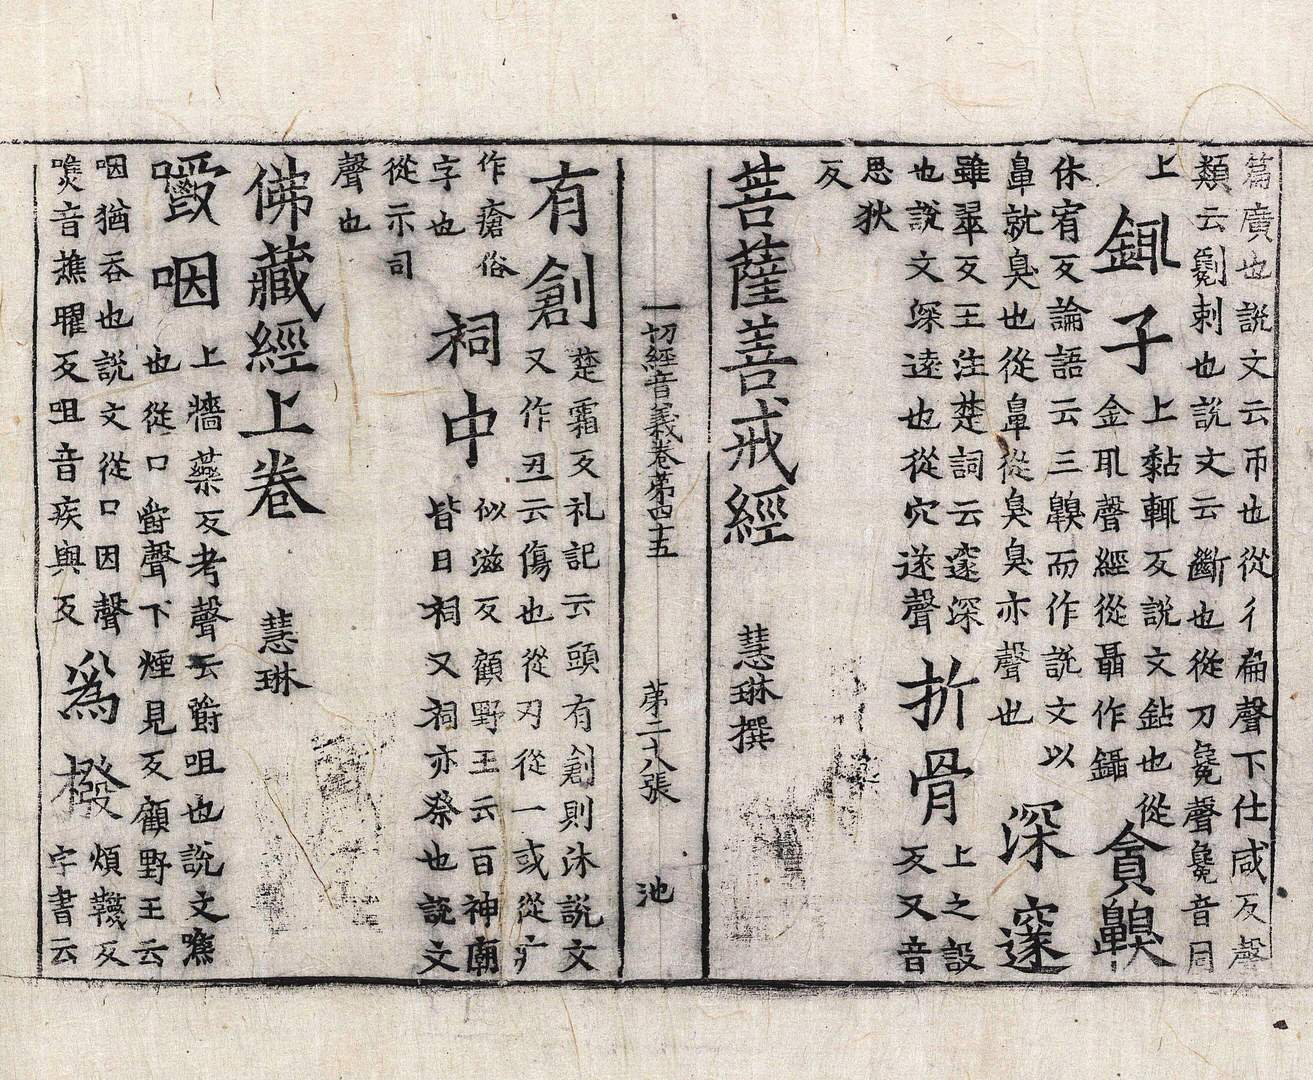 篇廣也說文云帀也從彳扁聲下仕咸反聲
類云劖刺也說文云斷也從刀毚聲毚音同
上
銸子
上黏輒反說文鉆也從
金耴聲經從聶作鑷
貪齅
休宥反論語云三齅而作說文以
鼻就臭也從鼻從臭臭亦聲也
深邃
雖翠反王注楚詞云邃深
也說文深遠也從穴遂聲
折骨
上之設
反又音
思狄
反
菩薩善戒經 慧琳撰
一切經音義卷第四十五 第二十八張 池
有創
楚霜反礼記云頭有創則沐說文
又作丑云傷也從刃從一或從疒
作瘡俗
字也
祠中
似滋反顧野王云百神廟
皆曰祠又祠亦祭也說文
從示司
聲也
佛藏經上卷 慧琳
嚼咽
上牆藥反考聲云嚼咀也說文噍
也從口爵聲下煙見反顧野王云
咽猶吞也說文從口因聲
噍音樵曜反咀音疾與反
為橃
煩韈反
字書云